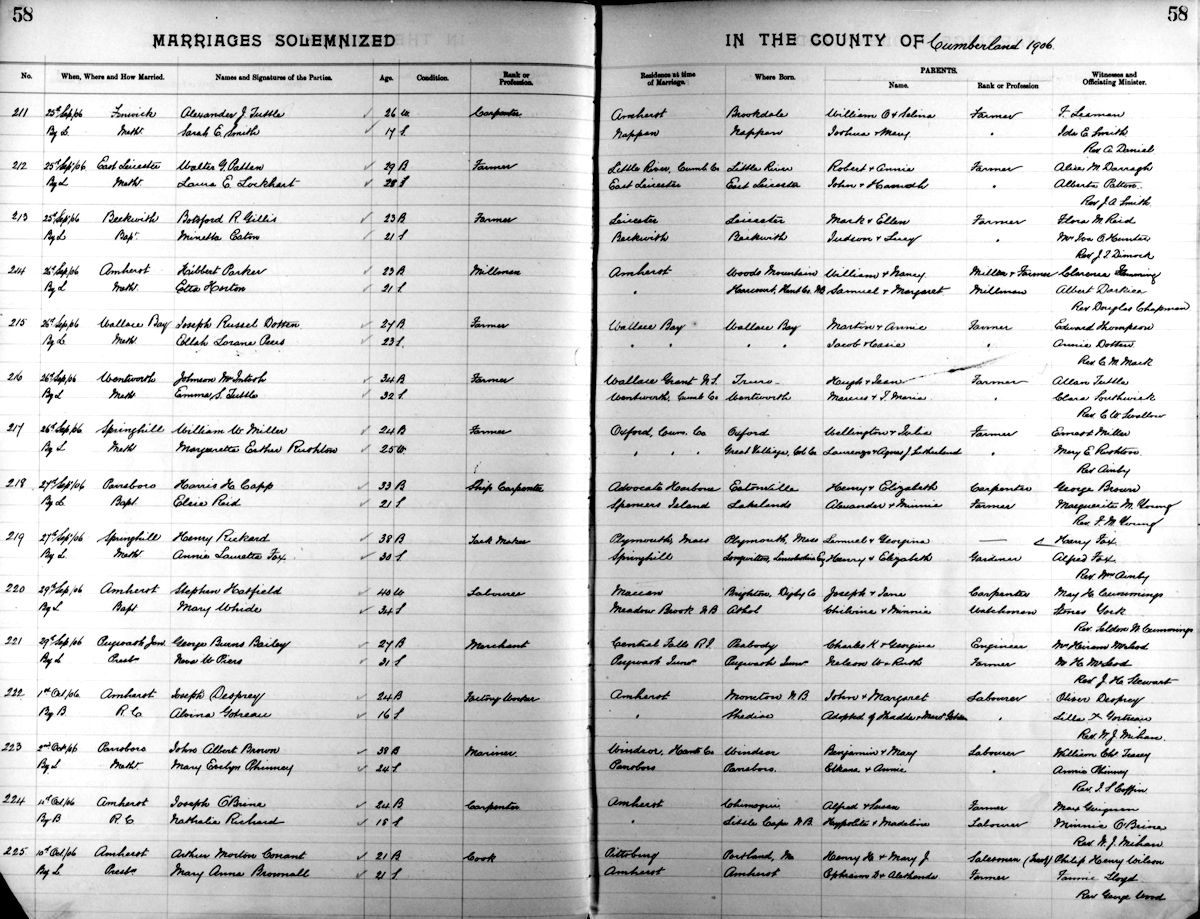 58
58
MARRIAGES SOLEMNIZED
IN THE COUNTY OF Cumberland 1906
No. When, Where and How Married. Names and Signatures of the Parties. Age. Condition. Rank or Profession. Residence at time of Marriage. Where Born. PARENTS. Name. Rank or Profession Witnesses and Officiating Minister.
211 25th Sep/06 Fenwick Alexander J Tuttle 26 W Carpenter Amherst Brookdale William O & Selina Farmer F. Leaman
By L Meth. Sarah E Smith 17 S Nappan Nappan Joshua & Mary " Ida E Smith
Rev A. Daniel
212 25th Sep/06 East Leicester Walter G. Patten 29 B Farmer Little River, Cumb Co Little River Robert & Annie Farmer Alice M. Darragh
By L Meth Laura E. Lockhart 28 S East Leicester East Leicester John & Hannah " Alberta Patten
Rev J A. Smith
213 25th Sep/06 Beckwith Botsford R. Gillis 23 B Farmer Leicester Leicester Mark & Ellen Farmer Flora M Reid
By L Bapt Minetta Eaton 21 S Beckwith Beckwith Judson & Lucy " Mrs Iva O Hunter
Rev J. T. Dimock
214 26th Sep/06 Amherst Hibbert Parker 23 B Millman Amherst Woods Mountain William & Nancy Miller & Farmer Clarence
By L Meth. Etta Horton 21 S " Harcourt, Kent Co. NB Samuel & Margaret Millman Albert
Rev Douglas Chapman
215 26th Sep/06 Wallace Bay Joseph Russel Dotten 27 B Farmer Wallace Bay Wallace Bay Martin & Annie Farmer Edward Thompson
By L Meth Ellah Lorane Peers 23 S " " " " Jacob & Casia Annie Dotten
Rev C. M. Mack
216 26th Sep/06 Wentworth Johnson McIntosh 34 B Farmer Wallace Grant N.S. Truro Hugh & Jean Farmer Allan Tuttle
By L Meth Emma S. Tuttle 32 S Wentworth, Cumb Co Wentworth Marcus & T. Maria " Clara Southwick
Rev C W Swallow
217 26th Sep/06 Springhill William W. Miller 24 B Farmer Oxford, Cum. Co Oxford Wellington & Julia Farmer Ernest Miller
By L Meth Margaretta Esther Rushton 25 W " " " Great Village, Col Co Laurenzo & Agnes J Sutherland Mary E. Rushton
Rev Ainby
218 27th Sep/06 Parrsboro Harris H. Capp 33 B Ship Carpenter Advocate Harbour Eatonville Henry & Elizabeth Carpenter George Brown
By L Bapt. Elsie Reid 21 S Spencers Island Lakelands Alexander & Minnie Farmer Marguerite M. Young
Rev F. M. Young
219 27th Sep/06 Springhill Henry Rickard 38 B Tack Maker Plymouth, Mass Plymouth, Mass Lemuel & Georgina — Harry Fox
By L Meth. Annie Lauretta Fox 30 S Springhill Lincolnshire Eng Henry & Elizabeth Gardiner Alfred Fox
Rev Wm Ainby
220 29th Sep/06 Amherst Stephen Hatfield 40 W Labourer Maccan Brighton, Digby Co Joseph & Jane Carpenter May H Cummings
By L Bapt Mary Whide 34 S Meadow Brook NB Athol & Minnie Watchman York
Rev. Seldon W. Cummings
221 29th Sep/06 Pugwash Jun. George Burns Bailey 27 B Merchant Central Falls R.I. Peabody Charles K & Georgina Engineer Mrs Hiram McLeod
By L Presb. W Piers 31 S Pugwash Junc Pugwash Junc Nelson W & Ruth Farmer M H McLeod
Rev J. H. Stewart
222 1st Oct/06 Amherst Joseph Desprey 24 B Factory Worker Amherst Moncton N B John & Margaret Labourer Oliver Desprey
By B R. C Alvina Gotreau 16 S " Shediac Adopted of "
Rev. W. J. Mihan
223 2nd Oct/06 Parrsboro John Albert Brown 38 B Mariner Windsor, Hants Co Windsor Benjamin & Mary Labourer William
By L Meth. Mary Evelyn Phinney 24 S Parrsboro Parrsboro Elkana & Annie " Annie Phinney
Rev. J. S Coffin
224 Oct/06 Amherst Joseph O'Brine 24 B Carpenter Amherst Chimoguie Alfred & Susan Farmer
By B R. C Nathalie Richard 18 S " Little Cape N.B. Hyppolite & Madeline Labourer Minnie O'Brine
Rev W. J. Mihan
225 10th Oct/06 Amherst Arthur Morton Conant 21 B Cook Pittsburg Portland, Me Henry H. & Mary J Salesman Philip Henry Wilson
By L Presb. Mary Anna Brownall 21 S Amherst Amherst Ephraim D & Farmer Fannie Lloyd
Rev George Wood